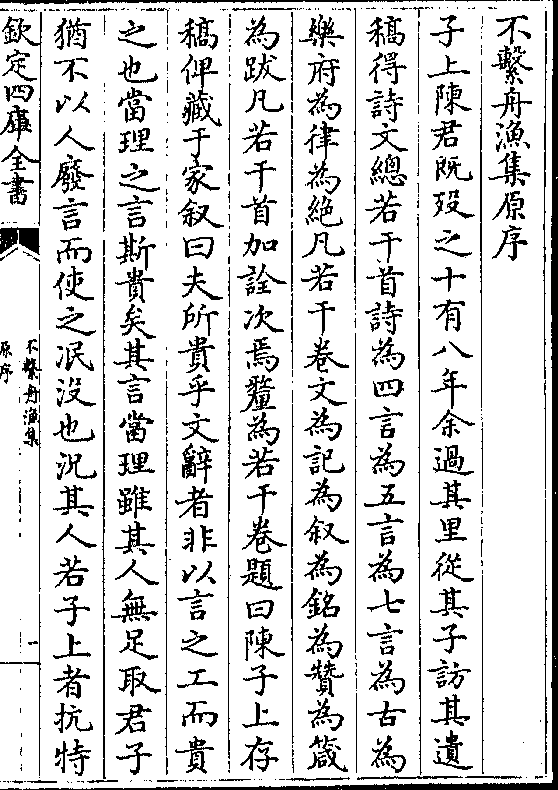 不繫舟漁集原序
子上陳君既歿之十有八年余過其里從其子訪其遺
稿得詩文總若干首詩為四言為五言為七言為古為
樂府為律為絕凡若干卷文為記為叙為銘為贊為箴
為跋凡若干首加詮次焉釐為若干卷題曰陳子上存
稿俾藏于家叙曰夫所貴乎文辭者非以言之工而貴
之也當理之言斯貴矣其言當理雖其人無足取君子
猶不以人廢言而使之泯沒也況其人若子上者抗特
欽定四庫全書
不繫舟漁集
原序
一